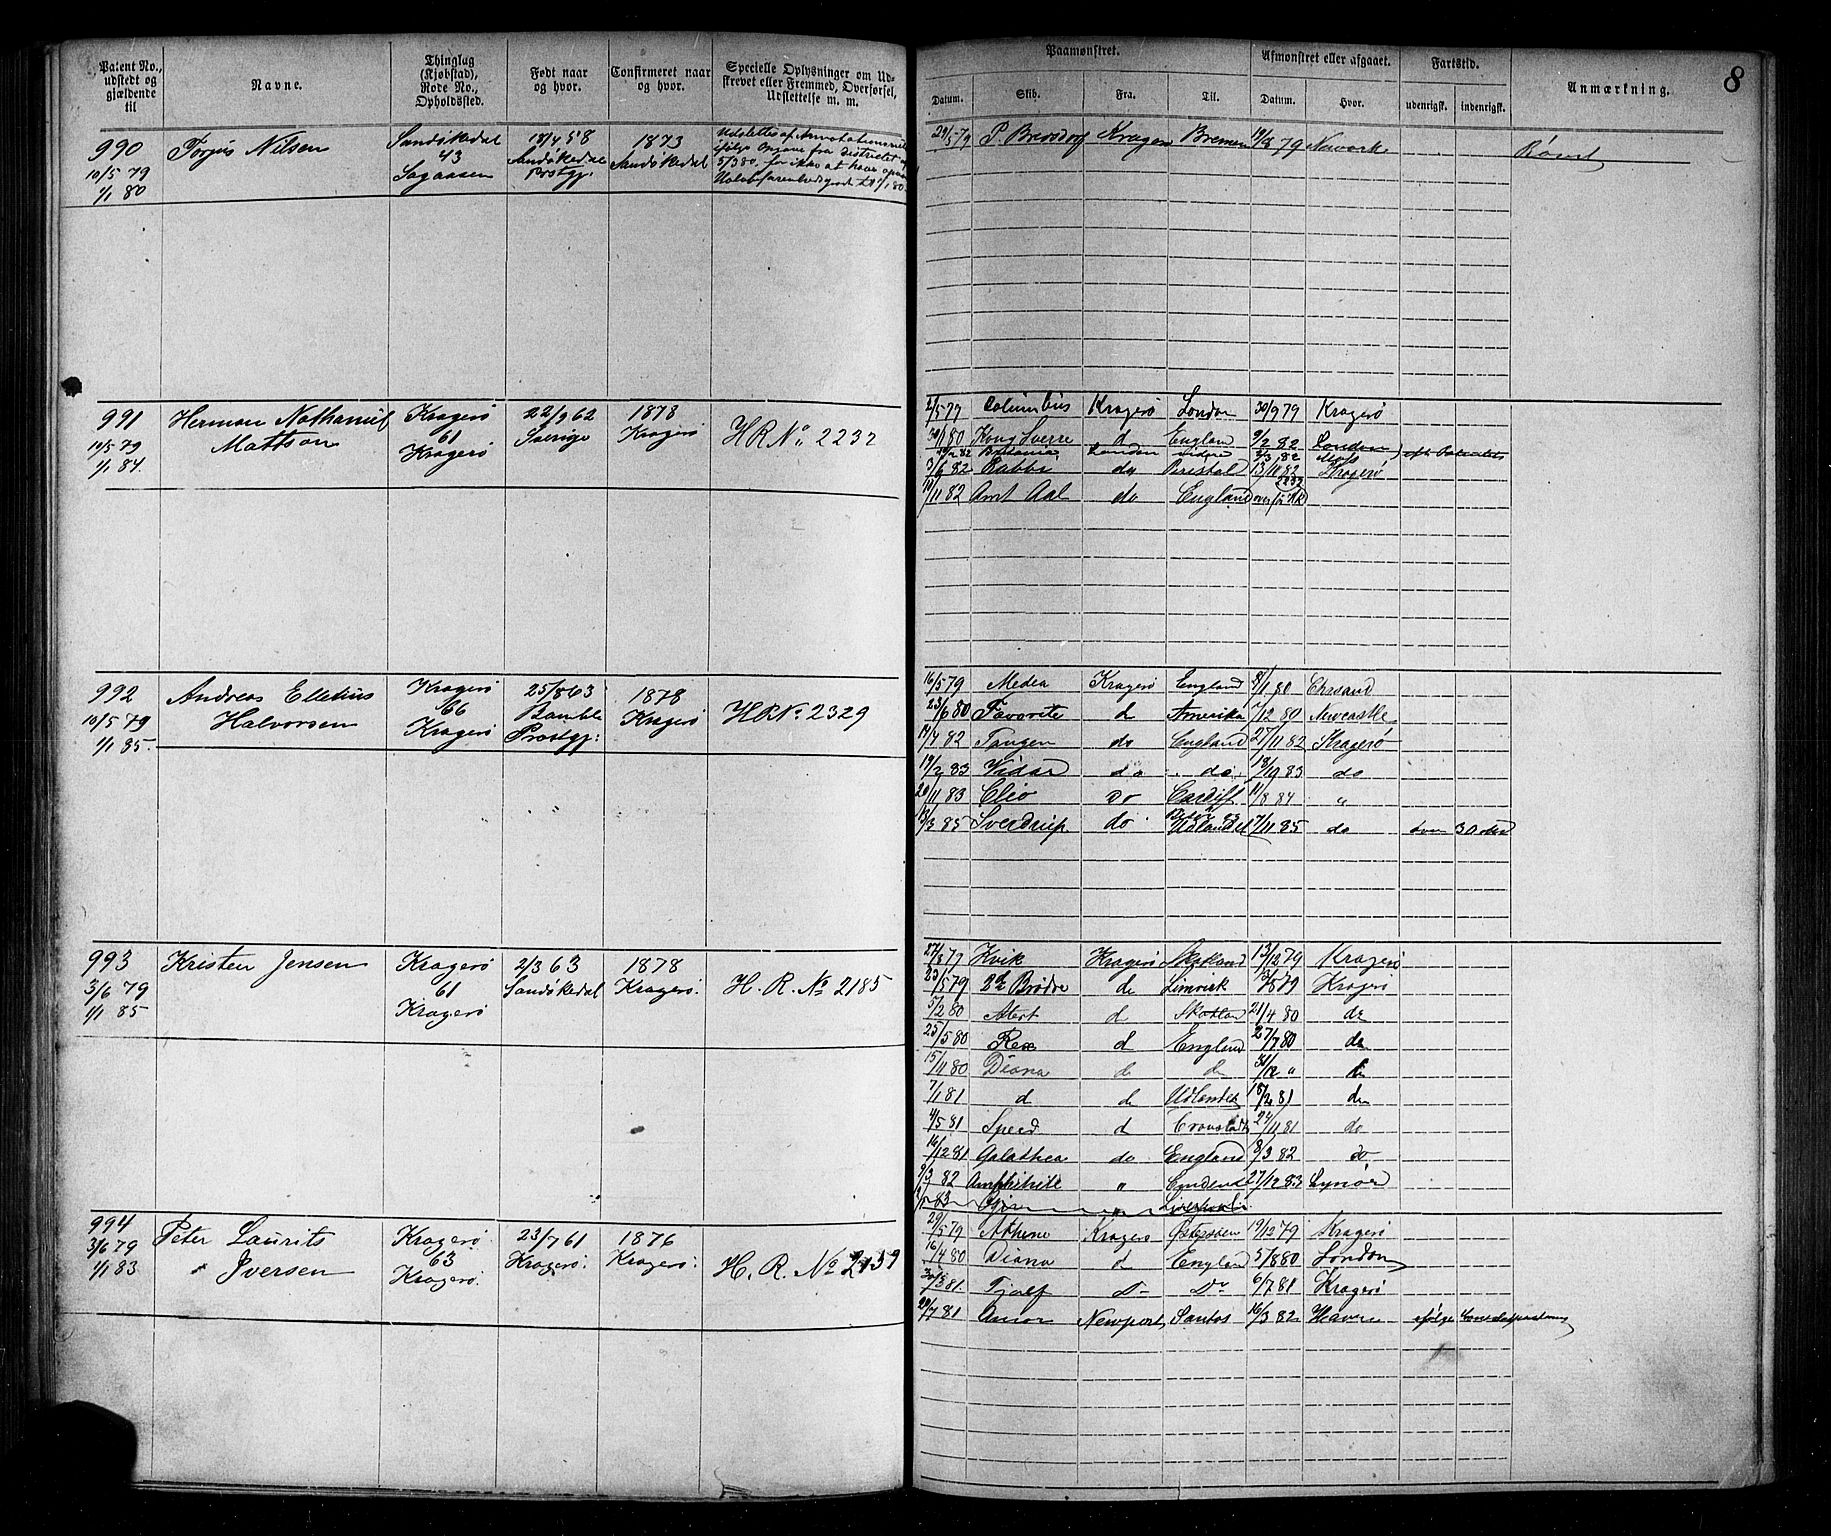 Patent No., udstedt og gjældende til
Navne.
Thinglag (Kjøbstad), Rode No., Opholdssted.
Født naar og hvor.
Confirmeret naar og hvor.
Specielle Oplysninger om Udskrevet eller Fremmed, Overførsel, Udslettelse m. m.
Paamønstret.
Datum. Skib. Fra. Til.
Afmønstret eller afgaaet.
Datum. Hvor.
Fartstid.
udenrigsk. indenrigsk.
Anmærkning.
8
990 Torjus Nilsen Sandøkedal 18/4 58 1873
10/5 79 43 Sandøkedal Sandøkedal
1/1 80 Sagaasen Prstgj.
Udslettes af Annotationsrul
ifølge Opgave fra Distriktet af
5/3 80, for ikke at have
29/5 79 Kragerø Bremen 79 Newark Rømt
991 Herman Nathaniel Kragerø 22/9 62 1878
10/5 79 Mattson 61 Sverige Kragerø HRNo. 2232
1/1 84. Kragerø
2/5 79 Columbus Kragerø London 30/9 79 Kragerø
80 Kong Sverre d England 9/2 82 London
Britania London 2/3 82 Moss
3/6 82 Rabbi do 13/11 82 Kragerø
11 82 Amt Aal do England 2232
992 Andreas Elledius Kragerø 25/8 63 1878
10/5 79 Halvorsen 66 Bamble Kragerø HRNo. 2329
1/1 85. Kragerø Prstgj:
16/5 79 Medea Kragerø England 8/1 80 Chrsand
23/6 80 Favorite d Amerika 7/12 80 Newcastle
82 Tangen do England 27/11 82 Kragerø
19/2 83 Vidar do do 18/10 83 do
20/11 83 Clio Do Cardiff 11/8 84 "
13/3 85 Sverdrup do Udlandet 7/11 85 do
993 Kristen Jensen Kragerø 2/3 63 1878
3/6 79 61 Sandøkedal Kragerø. H. R. No 2185
1/1 85 Kragerø
Kvik Kragerø 13/12 79 Kragerø
23/5 79 Brødre do Limrick Kragerø
5/2 80 d 21/4 80 do
25/5 80 Rex d England 27/7 80 do
15/11 80 Diana do d 31/12 " do
7/1 81 d do Udlandet 18/2 81 do
4/5 81 Speed d Cronstadt 24/11 81 do
16/12 81 Galathea do England 8/3 82 do
9/3 82 Amphitrite " 27/12 83 Lyngør
Liverpool
994 Peter Laurits Kragerø 23/7 61 1876
3/6 79 Iversen 63 Kragerø. Kragerø. H. R. No 2159
1/1 83 Kragerø.
29/5 79 Athene Kragerø Østersøen 19/12 79 Kragerø
16/4 80 Diana d England 5/8 80 London
30/3 81. Tjalf Do Do 6/7 81 Kragerø
29/7 81 Newport Santos 16/3 82 Havre